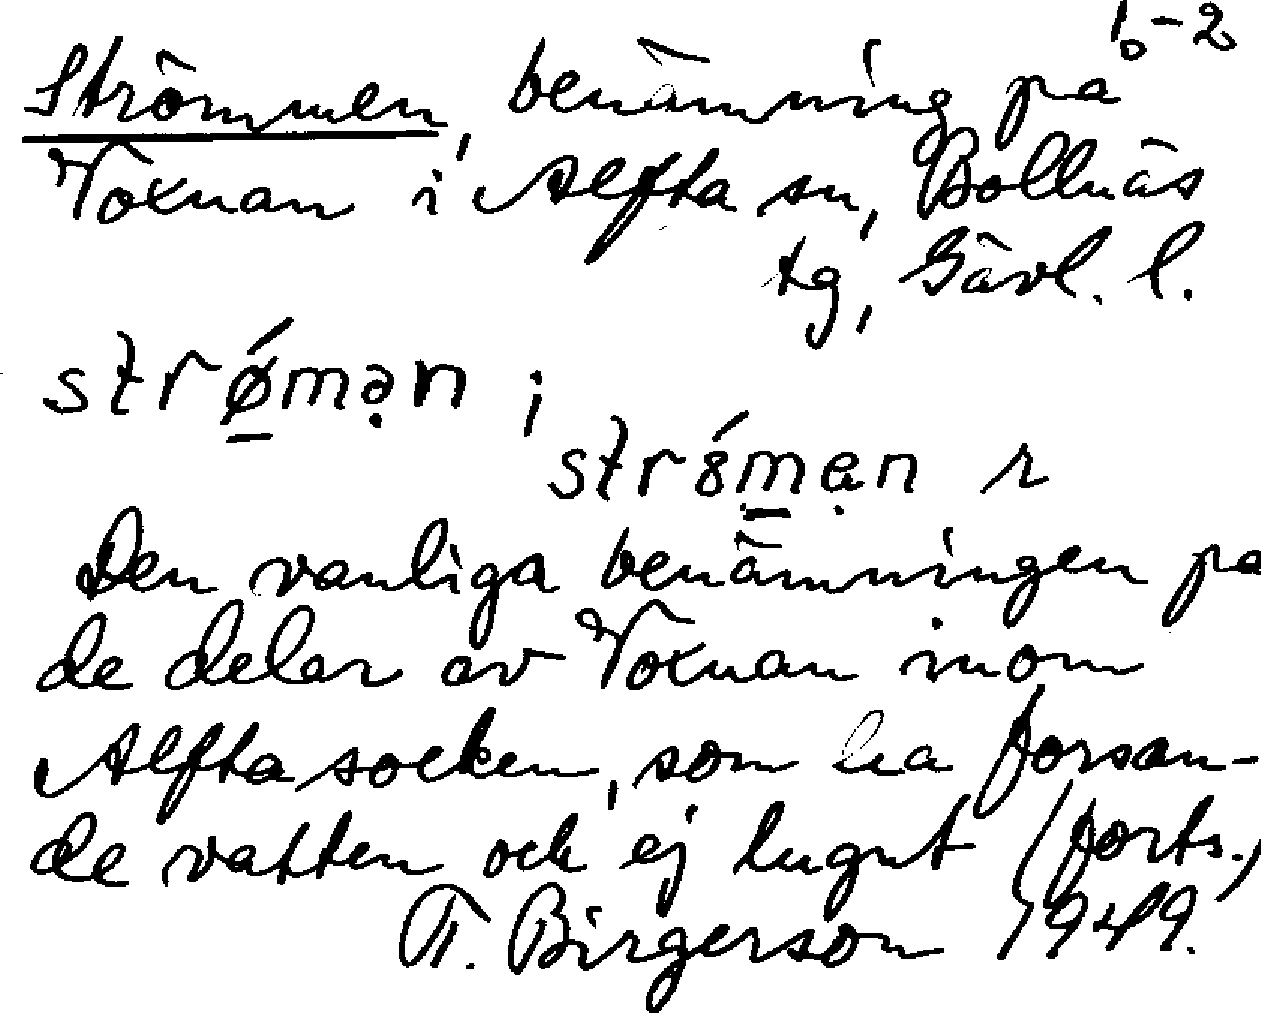 1-2
Strömmen, benämning på
Voxnan i Alfta sn, Bollnäs
tg, Gävl. l.
strǿ̲mə̣n ;
stró̲mạn r
Den vanliga benämningen på
de delar av Voxnan inom
Alfta socken, som ha forsan-
de vatten och ej lugnt (forts.)
T. Birgerson 1949.